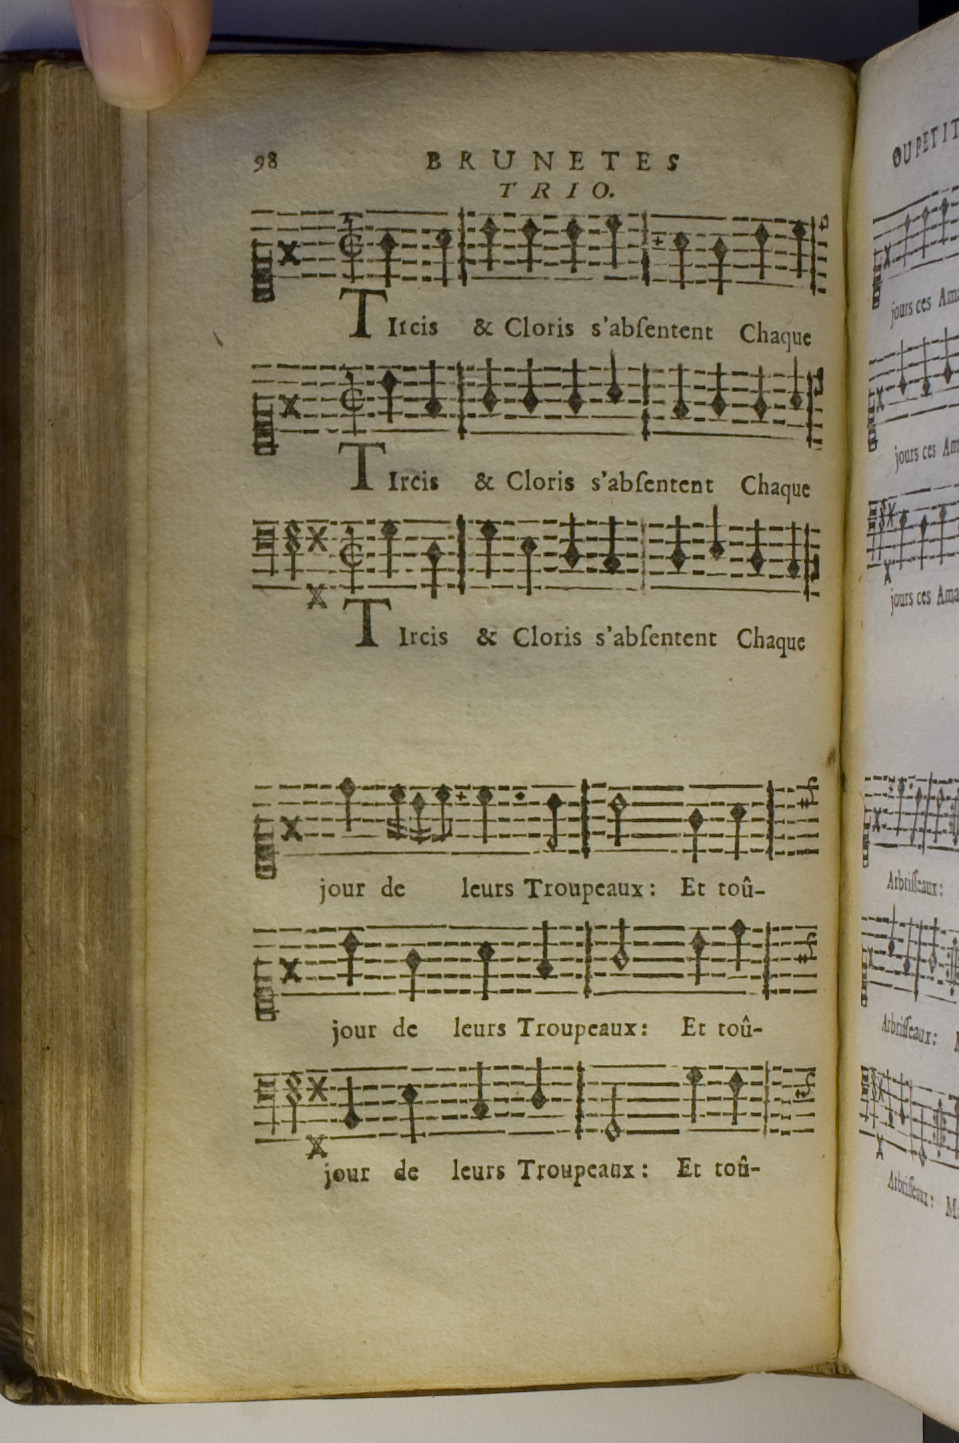 98 BRUNETES
TRIO.
TIrcis & Cloris s'abſentent Chaque
TIrcis & Cloris s'abſentent Chaque
TIrcis & Cloris s'abſentent Chaque
jour de leurs Troupeaux : Et toû-
jour de leurs Troupeaux : Et toû-
jour de leurs Troupeaux : Et toû-
OU PETIT
jours ces
jours ces
jours ces
Arbriſſeaux :
Arbriſſeaux :
Arbriſſeaux :